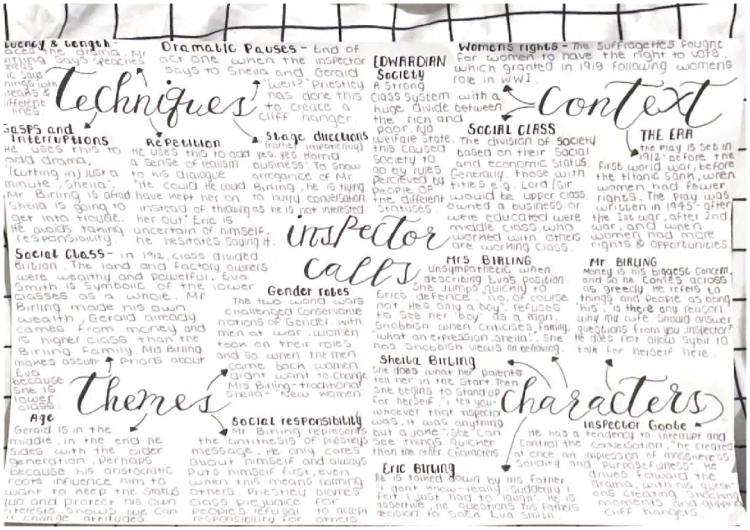 Fluency & Length -
aces the drama. Mr
Says speeches
ic Says
Techniques
Dramatic Pauses - End of
act one when the inspector
says to Sheila and Gerald
'Well?' Priestley
has done this
to create a
cliff hanger.
Gasps and
Interruptions
He uses this to
add drama,
(cutting in) 'Just a
minute, Sheila'.
Mr Birling is afraid
Sheila is going to
get into trouble.
He avoids taking
responsibility.
Repetition
He uses this to add
a sense of realism
to his dialogue
'He could He could
have kept her on
instead of throwing
her out'. Eric is
uncertain of himself.
he hesitates saying it.
Stage directions
(rather impatiently)
yes, yes. Horrid
business. To show
arrogance of Mr
Birling, he is trying
to hurry conversation
as he is not interested
EDWARDIAN
Society
A strong
class system with a
huge divide between
the rich and
poor. No
welfare state.
this caused
society to
go by rules
percieved by
people of
the different
statuses.
Womens rights - The suffragettes fought
for women to have the right to vote
which granted in 1919 following womens
role in WW1.
Context
SOCIAL CLASS
The division of society
based on their social
and economic status.
Generally, those with
titles e.g. Lord/Sir
would be upper class,
owned a business or
were educated were
middle class, who
worked with others
are working class.
THE ERA
The play is set in
1912 - before the
first world war, before
the titanic sank, when
women had fewer
rights. The play was
written in 1945 - after
the 1st war, after 2nd
war, and when
women had more
rights & opportunities.
inspector
calls
Social Class - in 1912, class divided
Britian. The land and factory owners
were wealthy and powerful. Eva
Smith is symbolic of the lower
classes as a whole. Mr
Birling made his own
wealth, Gerald already
comes from money and
is higher class than the
Birling Family. Mrs Birling
makes assumptions about
Eva
because
she is
lower
class
Gender roles
The two world wars
challenged conservative
notions of gender with
men at war, women
took on their roles
and so when the men
came back women
didnt want to change
Mrs Birling - traditional
Sheila - New women
Themes
Age
Gerald is in the
middle, in the end he
sides with the older
generation, perhaps
because his aristocratic
roots influence him to
want to keep the status
quo and protect his own
interests. Shows we can
change attitudes.
Social responsibility
Mr Birling represents
the antithesis of Priestleys
message. He only cares
about himself and always
puts himself first, even
when this means harming
others. Priestley blames
class prejudice for
people's refusal to accept
responsibility for others.
Mrs BIRLING
unsympathetic when
describing Eva's position.
She jumps quickly to
Eric's defence 'no, of course
not'. He's only a boy, refuses
to see her 'boy' as a man.
Snobbish when criticises family.
'what an expression, Sheila'.
has snobbish views on behaving.
Mr BIRLING
Money is his biggest concern,
and so he comes across
as greedy. He refers to
things and people as being
'his', 'is there any reason
why my wife should answer
questions from you, inspector?'
He does not allow Sybil to
talk for herself here.
Sheila Birling
She does what her parents
tell her in the start. Then
she begins to stand up
for herself. 'I tell you
whoever that inspector
was, it was anything
but a joke.' She can
see things quicker
than the other characters.
characters
Inspector Goole
He has a tendency to interrupt and
control the conversation. 'He creates
at once an impression of massiveness,
solidity and purposefulness'. He
drives forward the
drama, with his questions
creating shocking
moments and gripping
cliff hangers.
Eric Birling
He is talked down by his father
'I don't know - really. Suddenly I
felt I just had to laugh'. He is
assertive, he questions his fathers
decision to sack Eva Smith.